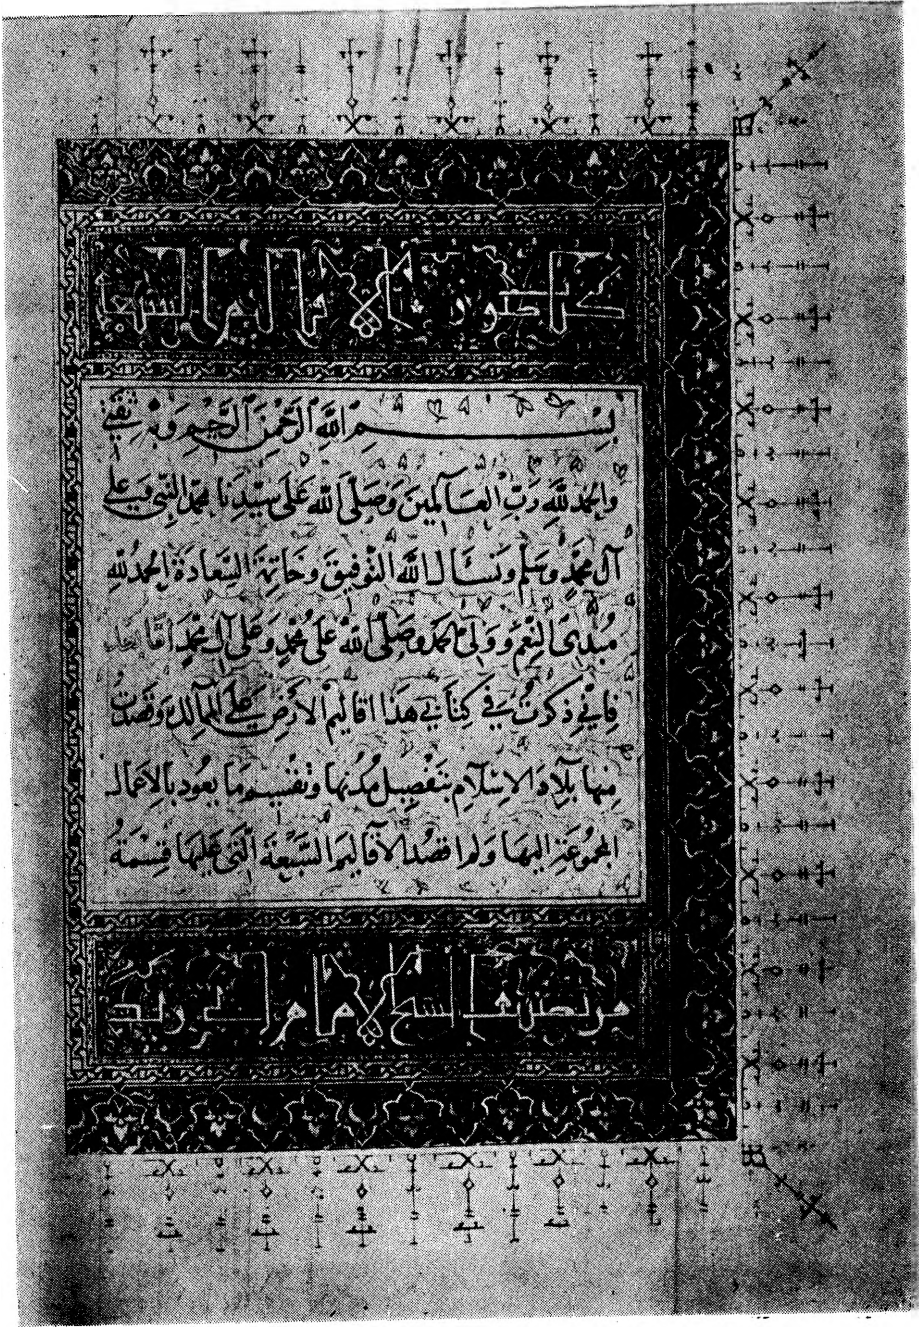 كتاب صور الاقاليم السبعة
بسم الله الرحمن الرحيم وبه ثقتي
والحمد لله رب العالمين وصلى الله على سيدنا محمد النبي وعلى
آل محمد وسلم ونسأل الله التوفيق وخاتمة السعادة الحمد لله
مبدئ النعم وولي الحمد وصلى الله على محمد وعلى آل محمد اما
فاني ذكرت في كتابي هذا اقاليم الارض على الممالك وقصدت
منها بلاد الاسلام بتفصيل مدنها وتقسيم ما يعود بالاعمال
المجموعة اليها ولم اقصد الاقاليم السبعة التي عليها قسمة
من تصنيف الشيخ الامام ابي زيد